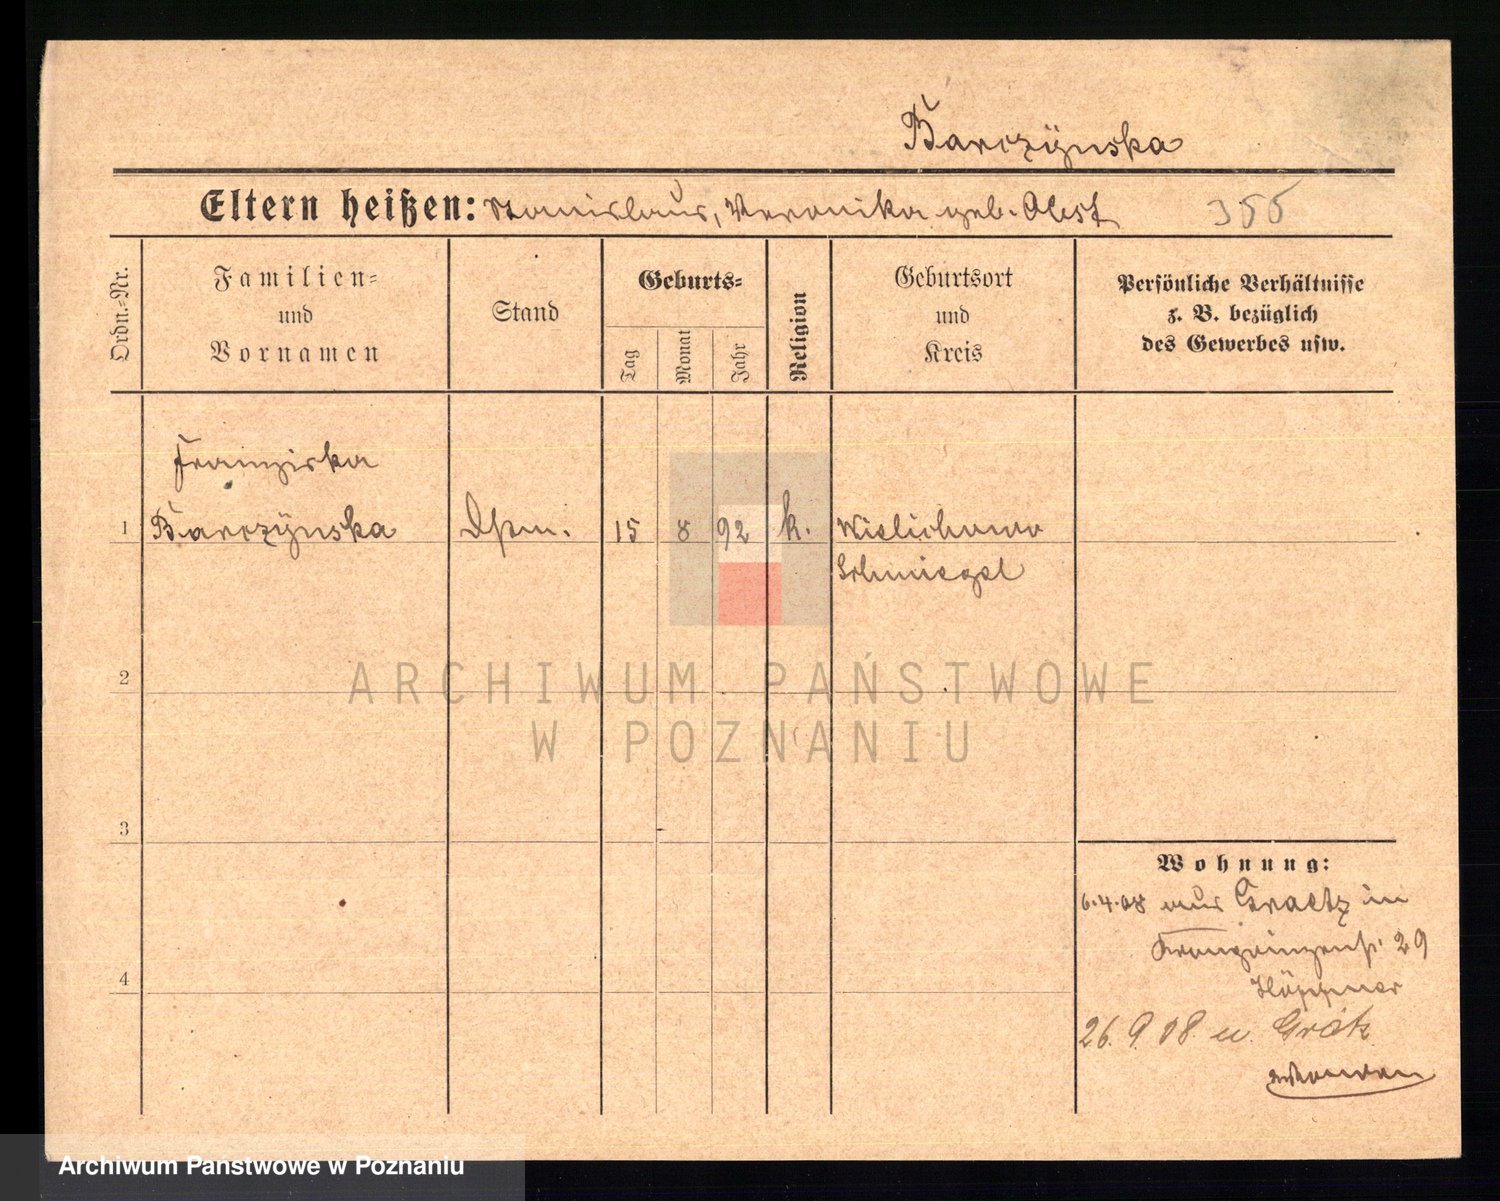 Barczÿnska
Eltern heißen: Stanislaus, Veronika geb. Obst 355
Ordn.-Nr.
Familien-
und
Vornamen
Stand
Geburts-
Tag
Monat
Jahr
Religion
Geburtsort
und
Kreis
Persönliche Verhältnisse
z. B. bezüglich
des Gewerbes usw.
Franziska
1 Barczÿnska Dstm. 15 8 92 k. Wielichowo
Schmiegel
2
3
4
Wohnung:
6.4.08 aus Graetz in
Kronprinzenstr. 29
Höppner
26.9.08. n. Grätz
ARCHIWUM PAŃSTWOWE
W POZNANIU
Archiwum Państwowe w Poznaniu